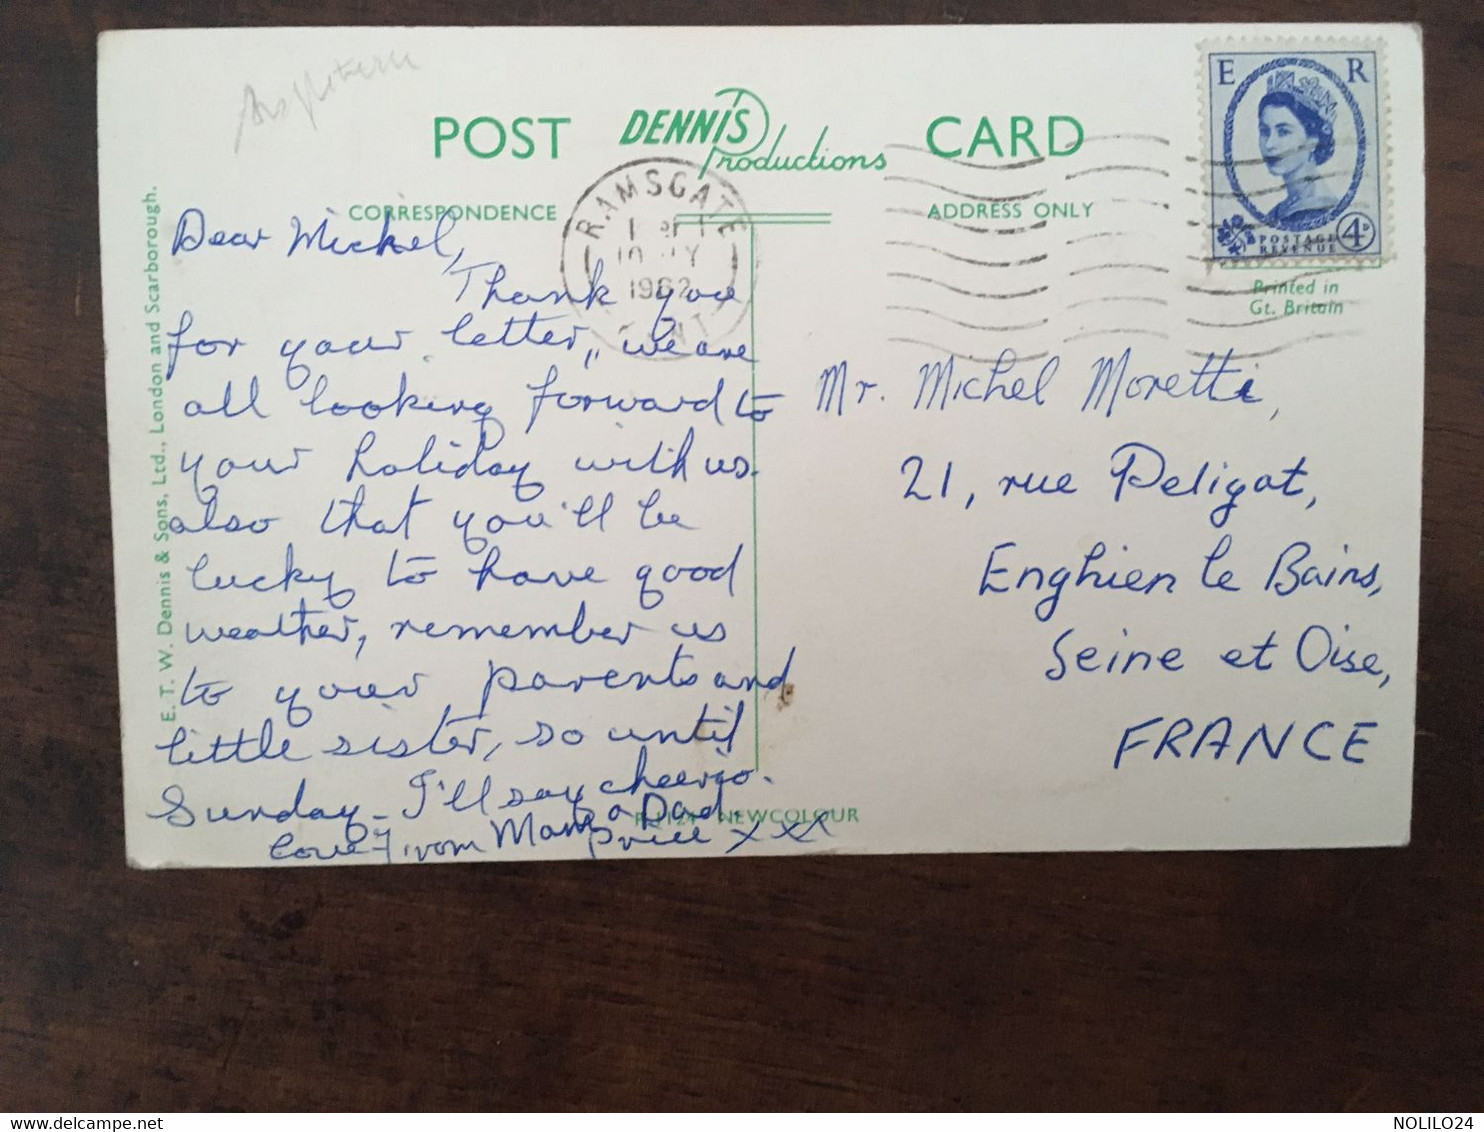 POST DENNIS Productions CARD
CORRESPONDENCE
ADDRESS ONLY
E R
POSTAGE REVENUE 4D
Printed in
Gt. Britain
RAMSGATE
1962
KENT
E. T. W. Dennis & Sons, Ltd., London and Scarborough.
Dear Michel,
Thank you
for your letter, we are
all looking forward to
your holiday with us.
also that you'll be
lucky to have good
weather, remember us
to your parents and
little sister, so until
Sunday - I'll say cheerio.
love from Mam & Dad.
xxx
NEWCOLOUR
Mr. Michel Moretti,
21, rue Peligot,
Enghien le Bains,
Seine et Oise,
FRANCE
NOLILO24